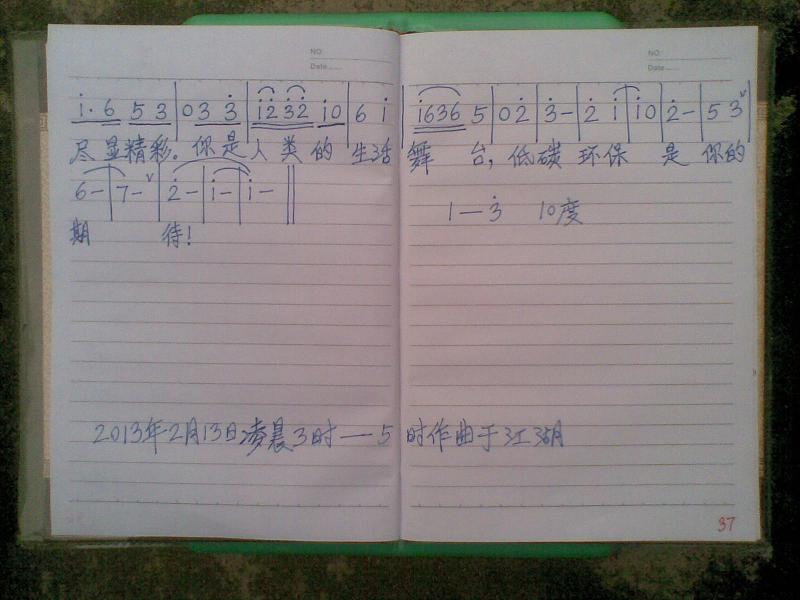 NO:
Date
NO:
Date
i· 6 5 3 | 0 3 3̇ | i 2̇ 3̇ 2̇ i 0 | 6 i | i 6 3 6 5 | 0 2̇ | 3̇ – | 2̇ i | i 0 | 2̇ – | 5 3̇ ∨
尽显精彩。你是人类的生活舞台,低碳环保是你的
6 – | 7 – ∨ | 2̇ – | i – | i – ‖
期 待!
1 — 3̇ 10度
2013年2月13日凌晨3时——5时作曲于江湖
37